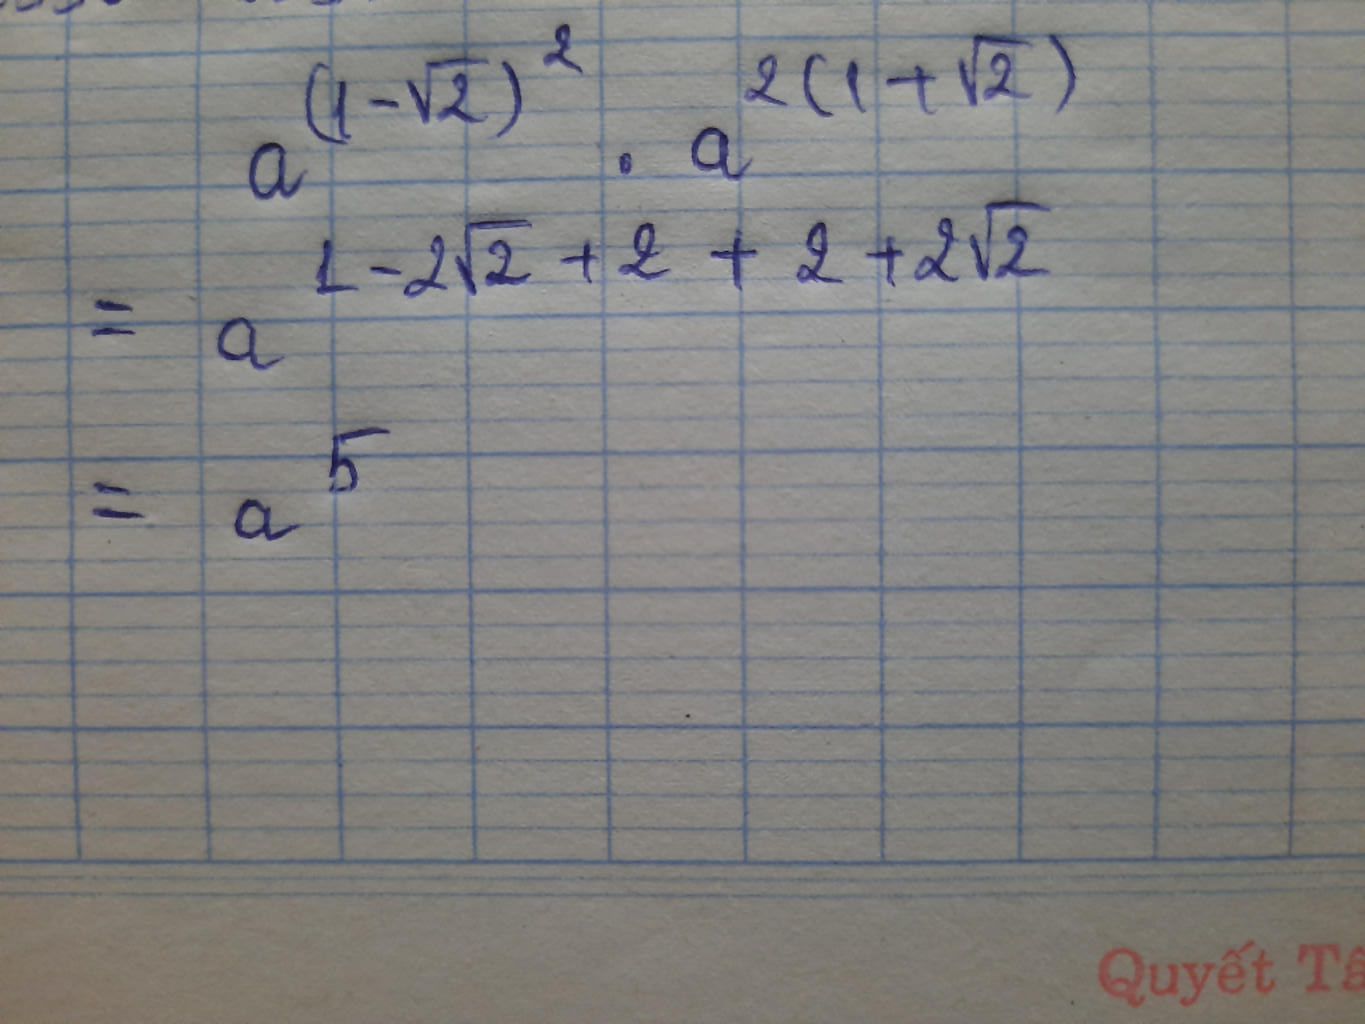 a^{(1-√2)^2} . a^{2(1+√2)}
= a^{1-2√2+2+2+2√2}
= a^5
Quyết